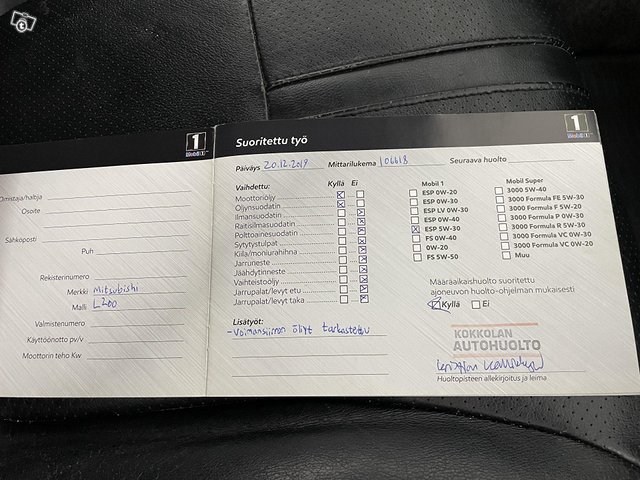 Omistaja/haltija
Osoite
Sähköposti
Puh
Rekisterinumero
Merkki Mitsubishi
Malli L200
Valmistenumero
Käyttöönotto pv/v
Moottorin teho Kw
1
Mobil 1
Suoritettu työ
1
Mobil 1
Päiväys 20.12.2019 Mittarilukema 106618 Seuraava huolto
Vaihdettu: Kyllä Ei
Moottoriöljy
Öljynsuodatin
Ilmansuodatin
Raitisilmasuodatin
Polttoainesuodatin
Sytytystulpat
Kiila/moniurahihna
Jarruneste
Jäähdytinneste
Vaihteistoöljy
Jarrupalat/levyt etu
Jarrupalat/levyt taka
Lisätyöt:
- Voimansiirron öljyt tarkastettu
Mobil 1
ESP 0W-20
ESP 0W-30
ESP LV 0W-30
ESP 0W-40
ESP 5W-30
FS 0W-40
0W-20
FS 5W-50
Mobil Super
3000 5W-40
3000 Formula FE 5W-30
3000 Formula F 5W-20
3000 Formula P 0W-30
3000 Formula R 5W-30
3000 Formula VC 0W-30
3000 Formula VC 0W-20
Muu
Määräaikaishuolto suoritettu
ajoneuvon huolto-ohjelman mukaisesti
Kyllä Ei
KOKKOLAN
AUTOHUOLTO
Huoltopisteen allekirjoitus ja leima